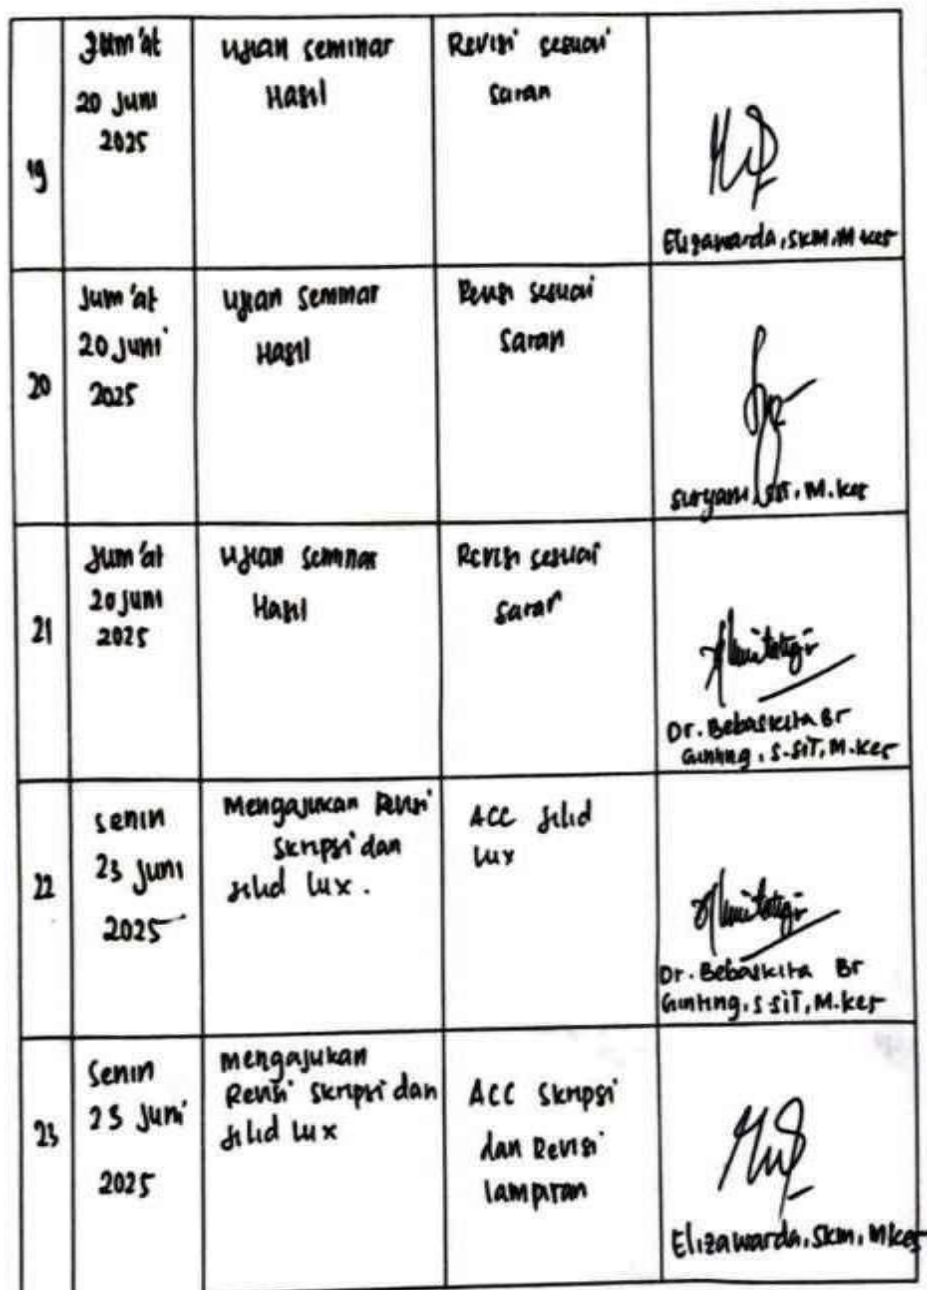 19
Jum'at
20 Juni
2025
Ujian seminar
Hasil
Revisi sesuai
saran
Elizawarda, SKM, M.Kes
20
Jum'at
20 Juni
2025
Ujian seminar
Hasil
Revisi sesuai
saran
Suryani, SST, M.Kes
21
Jum'at
20 Juni
2025
Ujian seminar
Hasil
Revisi sesuai
saran
Dr. Bebaskita Br
Ginting, S.SiT, M.Kes
22
Senin
23 Juni
2025
Mengajukan Revisi
Skripsi dan
Jilid Lux.
ACC Jilid
Lux
Dr. Bebaskita Br
Ginting, S.SiT, M.Kes
23
Senin
23 Juni
2025
Mengajukan
Revisi Skripsi dan
Jilid Lux
ACC Skripsi
dan Revisi
lampiran
Elizawarda, SKM, MKes